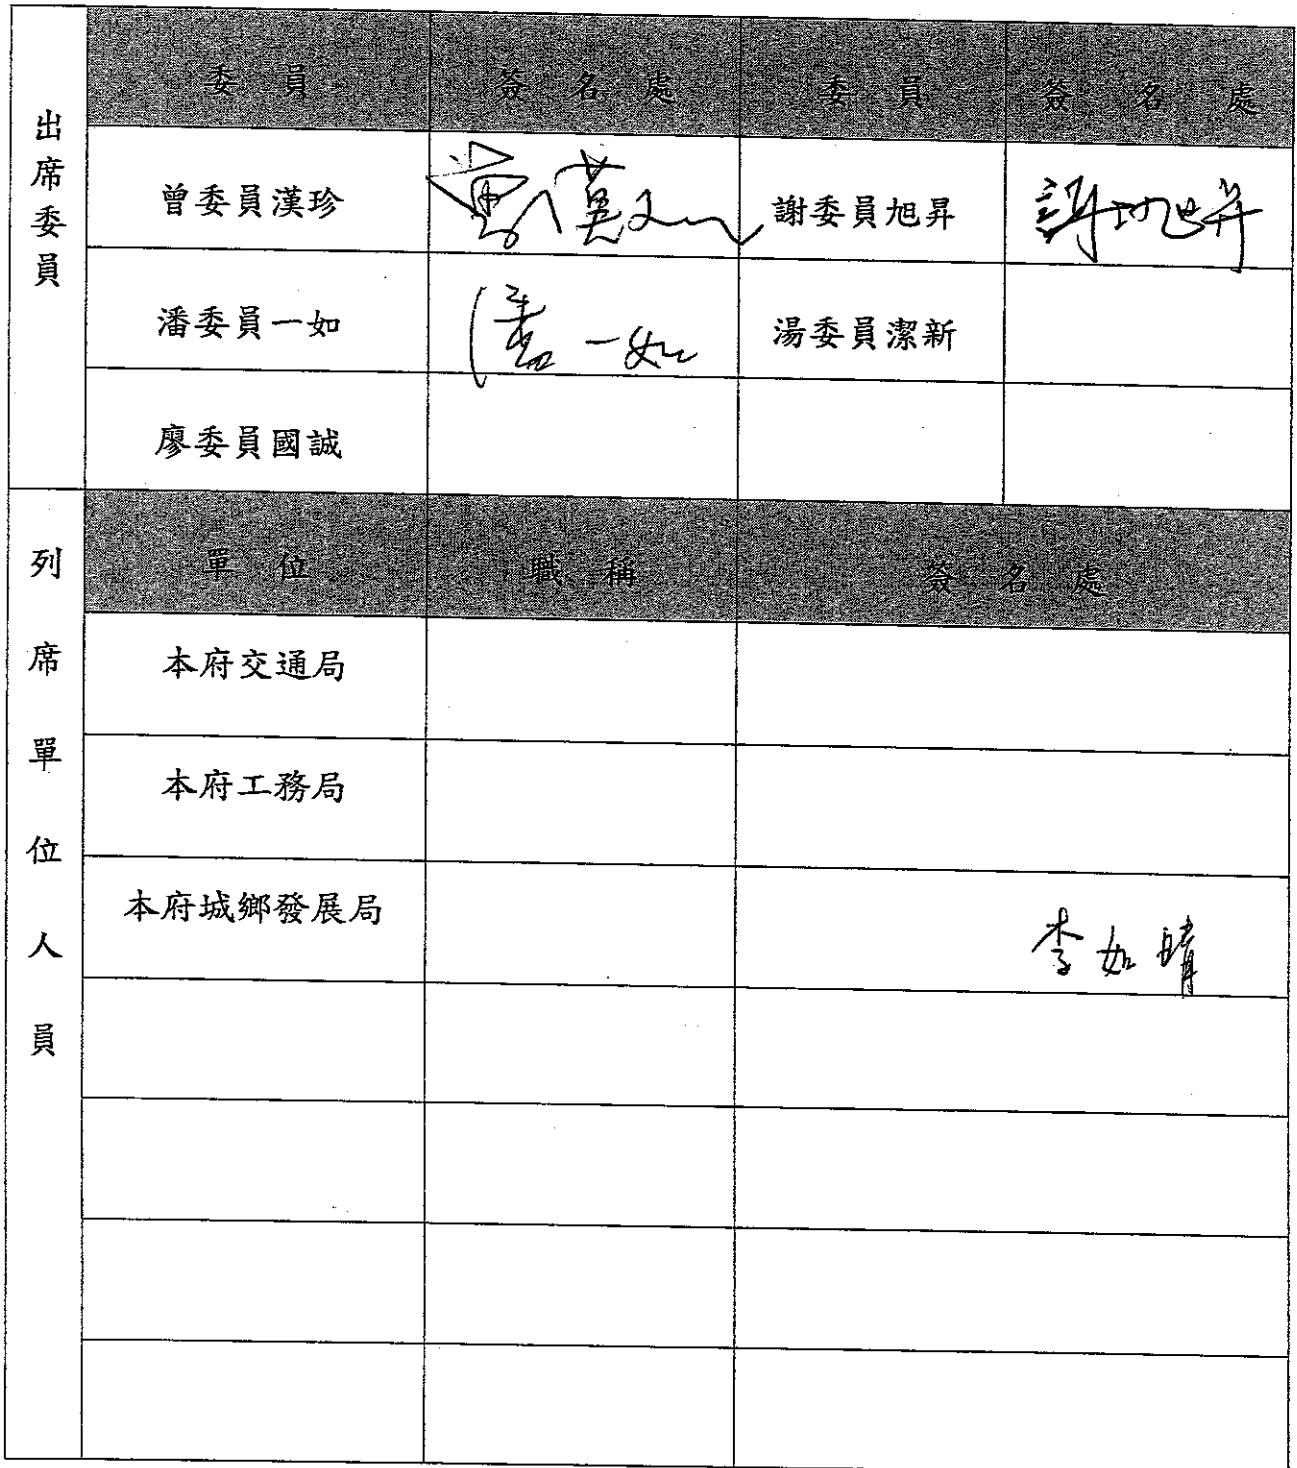 出席委員
委員 簽名處 委員 簽名處
曾委員漢珍 謝委員旭昇 謝旭昇
潘委員一如 潘一如 湯委員潔新
廖委員國誠
列席單位人員
單位 職稱 簽名處
本府交通局
本府工務局
本府城鄉發展局 李如晴